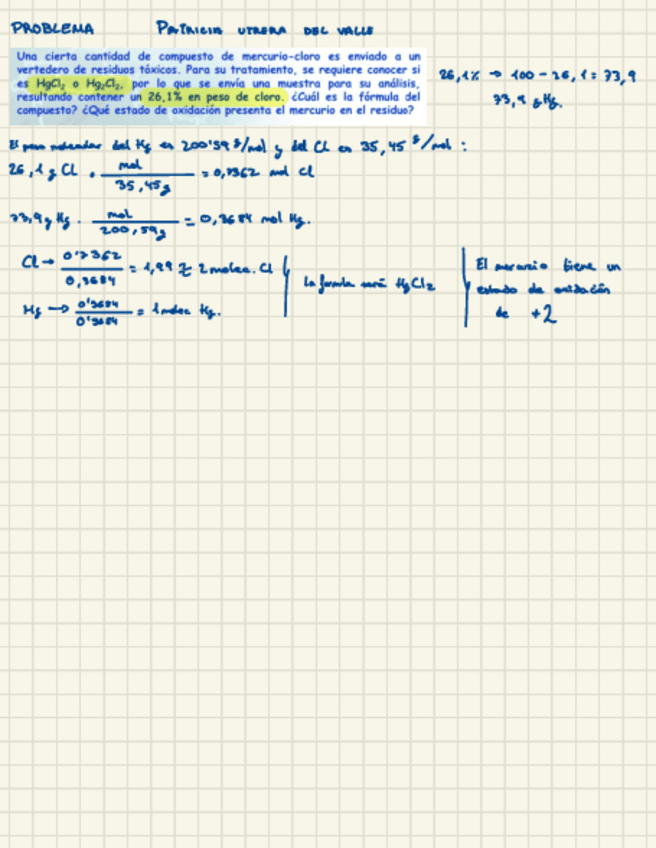 PROBLEMA PATRICIA UTRERA DEL VALLE
Una cierta cantidad de compuesto de mercurio-cloro es enviado a un
vertedero de residuos tóxicos. Para su tratamiento, se requiere conocer si
es HgCl₂ o Hg₂Cl₂, por lo que se envía una muestra para su análisis,
resultando contener un 26,1% en peso de cloro. ¿Cuál es la fórmula del
compuesto? ¿Qué estado de oxidación presenta el mercurio en el residuo?
26,1% → 100 - 26,1 = 73,9
73,9 g Hg.
El peso molecular del Hg es 200'59 g/mol y del Cl es 35,45 g/mol:
26,1 g Cl . mol / 35,45g = 0,7362 mol Cl
73,9g Hg . mol / 200,59g = 0,3684 mol Hg.
Cl → 0'7362 / 0,3684 = 1,99 ≈ 2 molec. Cl
Hg → 0'3684 / 0'3684 = 1 molec Hg.
La formula será HgCl₂
El mercurio tiene un
estado de oxidación
de +2